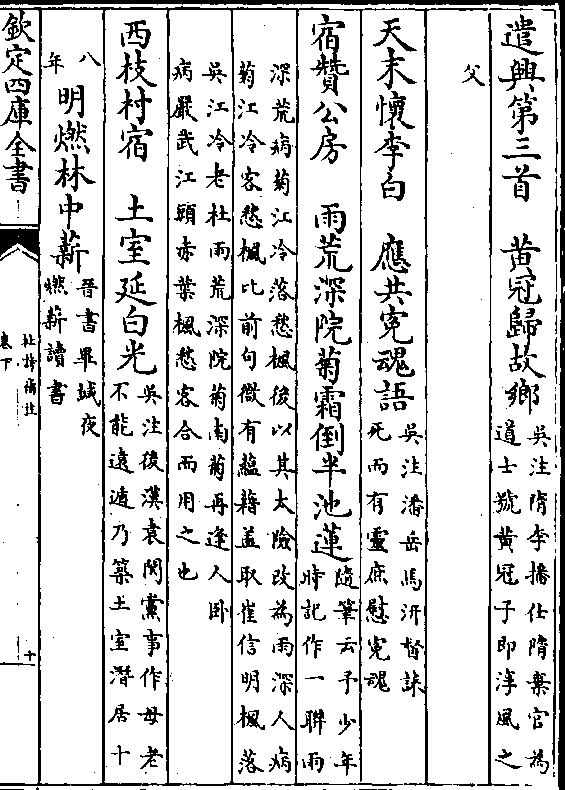 遣興第三首　黃冠歸故鄉吳注隋李播仕隋棄官為
道士號黃冠子即淳風之
父
天末懷李白　應共寃魂語吳注潘岳馬汧督誄
死而有靈庶慰寃魂
宿贊公房　雨荒深院菊霜倒半池蓮隨筆云予少年
時記作一聯雨
深荒病菊江冷落愁楓後以其太險改為雨深人病
菊江冷客愁楓比前句微有蘊藉盖取崔信明楓落
吳江冷老杜雨荒深院菊南菊再逢人卧
病嚴武江頭赤葉楓愁客合而用之也
西枝村宿　土室延白光吳注後漢袁閎黨事作母老
不能遠遁乃築土室潛居十
八
年
明燃林中薪晉書畢瑊夜
燃薪讀書
欽定四庫全書
杜詩攟註
卷下
十